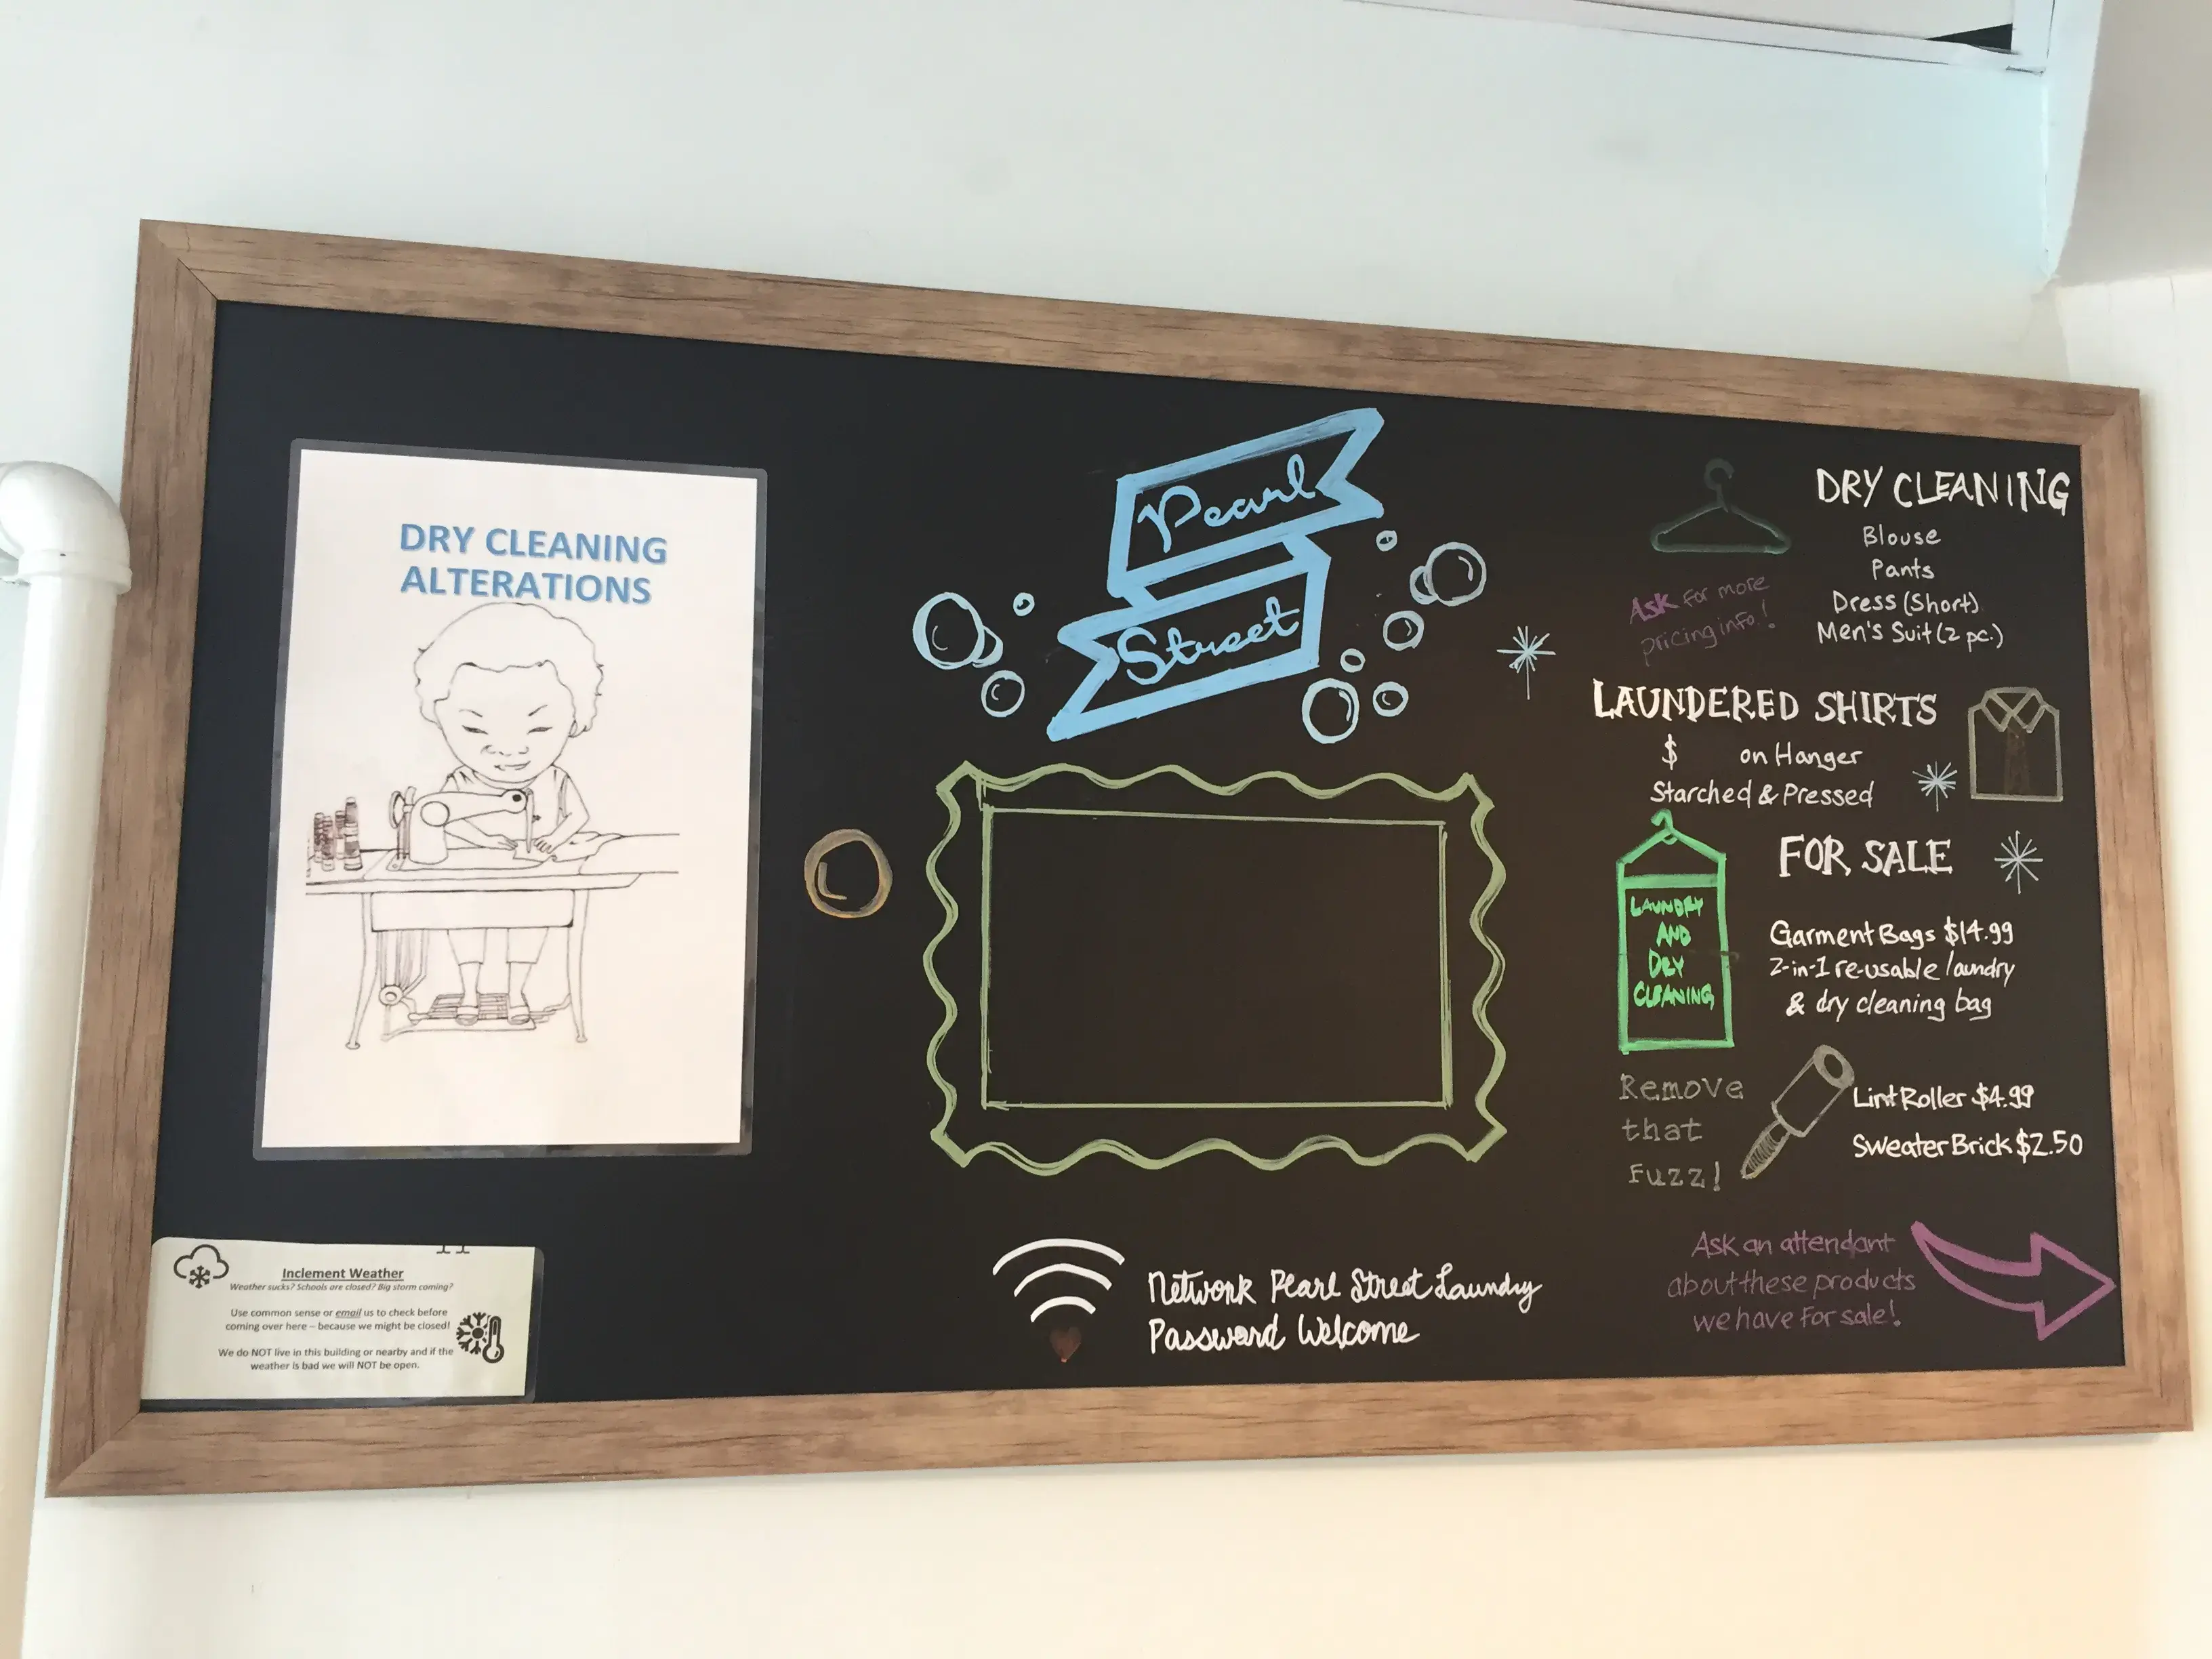 DRY CLEANING
ALTERATIONS
Inclement Weather
Weather sucks? Schools are closed? Big storm coming?
Use common sense or email us to check before
coming over here – because we might be closed!
We do NOT live in this building or nearby and if the
weather is bad we will NOT be open.
Pearl
Street
Network Pearl Street Laundry
Password Welcome
DRY CLEANING
Blouse
Pants
Dress (Short)
Men's Suit (2 pc.)
Ask for more
pricing info.!
LAUNDERED SHIRTS
$ on Hanger
Starched & Pressed
FOR SALE
LAUNDRY
AND
DRY
CLEANING
Garment Bags $14.99
2-in-1 re-usable laundry
& dry cleaning bag
Remove
that
Fuzz!
Lint Roller $4.99
Sweater Brick $2.50
Ask an attendant
about these products
we have for sale!